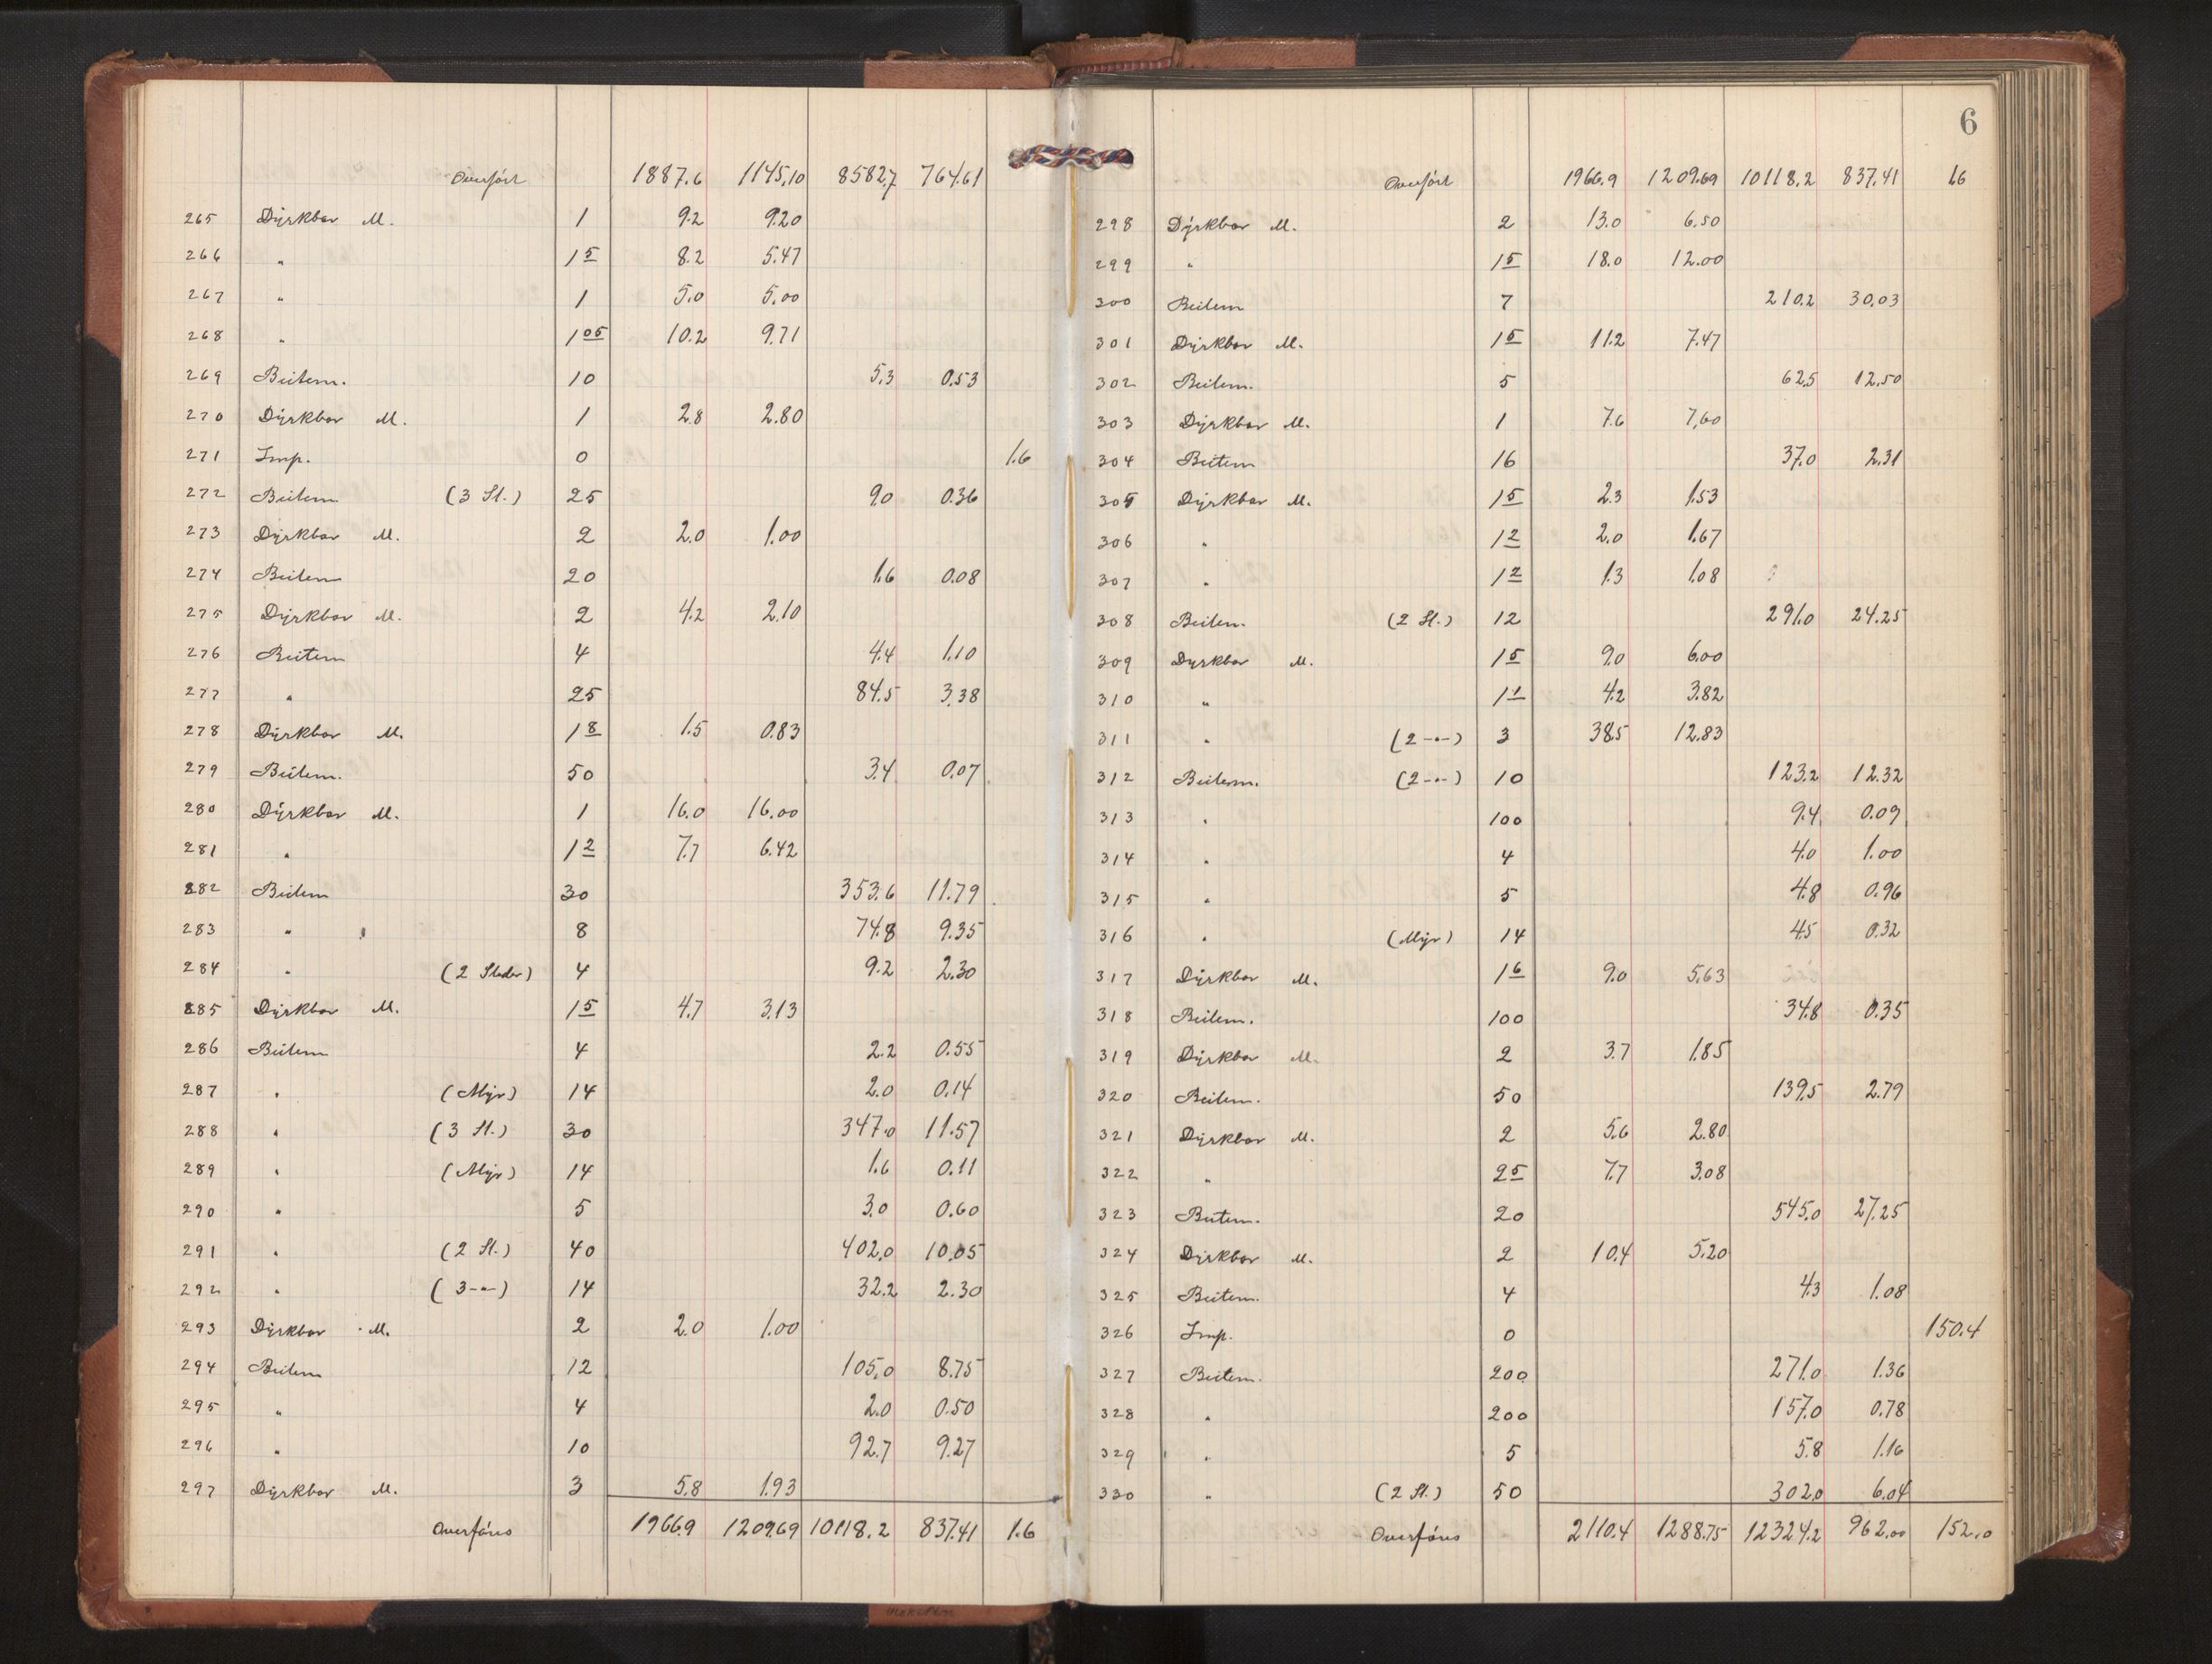 Overført 1887.6 1145.10 8582.7 764.61
265 Dyrkbar M. 1 9.2 9.20
266 " 1 5 8.2 5.47
267 " 1 5.0 5.00
268 " 1 05 10.2 9.71
269 Beitem. 10 5.3 0.53
270 Dyrkbar M. 1 2.8 2.80
271 Imp. 0 1.6
272 Beitem (3 St.) 25 9.0 0.36
273 Dyrkbar M. 2 2.0 1.00
274 Beitem 20 1.6 0.08
275 Dyrkbar M. 2 4.2 2.10
276 Beitem 4 4.4 1.10
277 " 25 84.5 3.38
278 Dyrkbar M. 1 8 1.5 0.83
279 Beitem. 50 3.4 0.07
280 Dyrkbar M. 1 16.0 16.00
281 " 1 2 7.7 6.42
282 Beitem 30 353.6 11.79
283 " 8 74.8 9.35
284 " (2 Steder) 4 9.2 2.30
285 Dyrkbar M. 1 5 4.7 3.13
286 Beitem 4 2.2 0.55
287 " (Myr) 14 2.0 0.14
288 " (3 St.) 30 347.0 11.57
289 " (Myr) 14 1.6 0.11
290 " 5 3.0 0.60
291 " (2 St.) 40 402.0 10.05
292 " (3-"-) 14 32.2 2.30
293 Dyrkbar M. 2 2.0 1.00
294 Beitem 12 105.0 8.75
295 " 4 2.0 0.50
296 " 10 92.7 9.27
297 Dyrkbar M. 3 5.8 1.93
Overføres 1966.9 1209.69 10118.2 837.41 1.6
6
Overført 1966.9 1209.69 10118.2 837.41 1.6
298 Dyrkbar M. 2 13.0 6.50
299 " 1 5 18.0 12.00
300 Beitem 7 210.2 30.03
301 Dyrkbar M. 1 5 11.2 7.47
302 Beitem. 5 62.5 12.50
303 Dyrkbar M. 1 7.6 7.60
304 Beitem 16 37.0 2.31
305 Dyrkbar M. 1 5 2.3 1.53
306 " 1 2 2.0 1.67
307 " 1 2 1.3 1.08
308 Beitem. (2 St.) 12 291.0 24.25
309 Dyrkbar M. 1 5 9.0 6.00
310 " 1 1 4.2 3.82
311 " (2-"-) 3 38.5 12.83
312 Beitem. (2-"-) 10 123.2 12.32
313 " 100 9.4 0.09
314 " 4 4.0 1.00
315 " 5 4.8 0.96
316 " (Myr) 14 4.5 0.32
317 Dyrkbar M. 1 6 9.0 5.63
318 Beitem. 100 34.8 0.35
319 Dyrkbar M. 2 3.7 1.85
320 Beitem. 50 139.5 2.79
321 Dyrkbar M. 2 5.6 2.80
322 " 2 5 7.7 3.08
323 Beitem. 20 545.0 27.25
324 Dyrkbar M. 2 10.4 5.20
325 Beitem. 4 4.3 1.08
326 Imp. 0 150.4
327 Beitem. 200 271.0 1.36
328 " 200 157.0 0.78
329 " 5 5.8 1.16
330 " (2 St.) 50 302.0 6.04
Overføres 2110.4 1288.75 12324.2 962.00 152.0